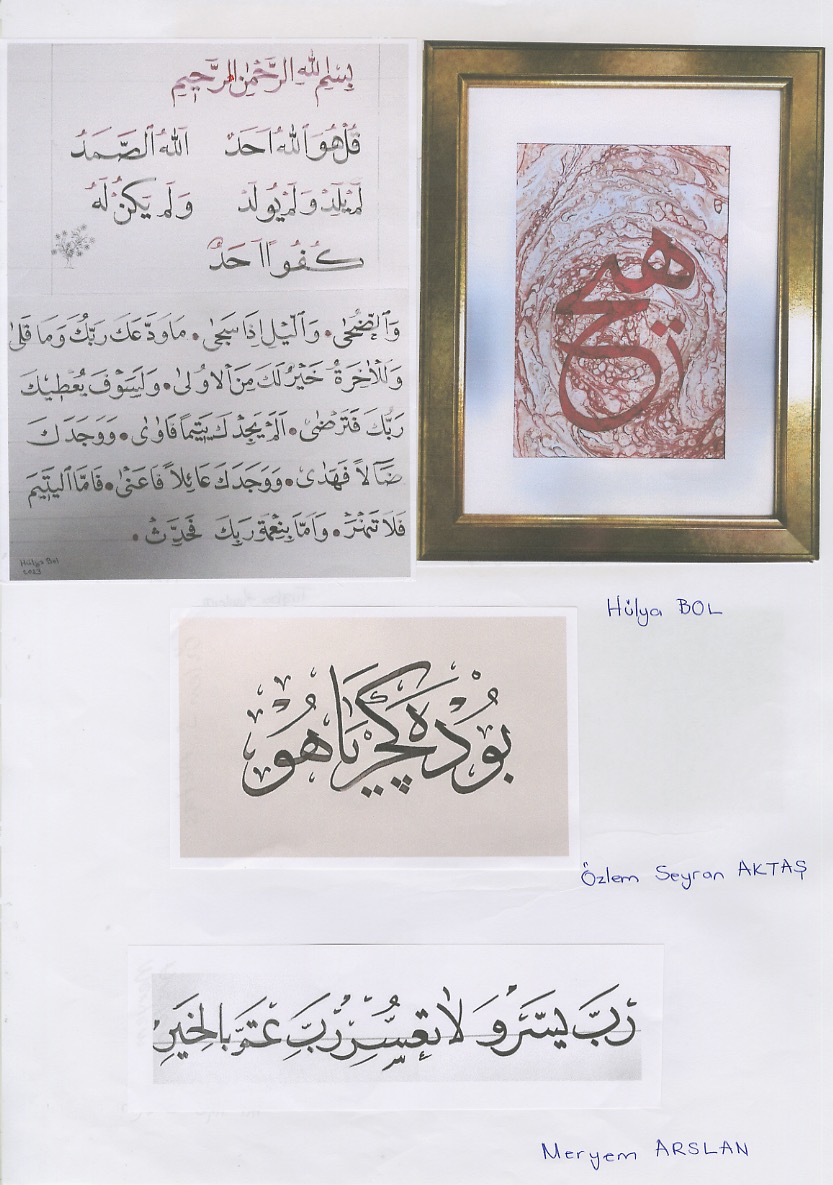 بِسْمِ اللهِ الرَّحْمٰنِ الرَّحِيمِ
قُلْ هُوَ اللهُ اَحَدٌ اَللهُ الصَّمَدُ
لَمْ يَلِدْ وَلَمْ يُولَدْ وَلَمْ يَكُنْ لَهُ
كُفُوًا اَحَدٌ
وَالضُّحٰى • وَالَّيْلِ اِذَا سَجٰى • مَا وَدَّعَكَ رَبُّكَ وَمَا قَلٰى
وَلَلْاٰخِرَةُ خَيْرٌ لَكَ مِنَ الْاُولٰى • وَلَسَوْفَ يُعْطِيكَ
رَبُّكَ فَتَرْضٰى • اَلَمْ يَجِدْكَ يَتِيمًا فَاٰوٰى • وَوَجَدَكَ
ضَالًّا فَهَدٰى • وَوَجَدَكَ عَائِلًا فَاَغْنٰى • فَاَمَّا الْيَتِيمَ
فَلَا تَقْهَرْ • وَاَمَّا بِنِعْمَةِ رَبِّكَ فَحَدِّثْ •
Hülya Bol
2023
هيچ
Hülya BOL
بُودَه كَچَر يَاهُو
Özlem Seyran AKTAŞ
رَبِّ يَسِّرْ وَلَا تُعَسِّرْ رَبِّ تَمِّمْ بِالْخَيْرِ
Meryem ARSLAN